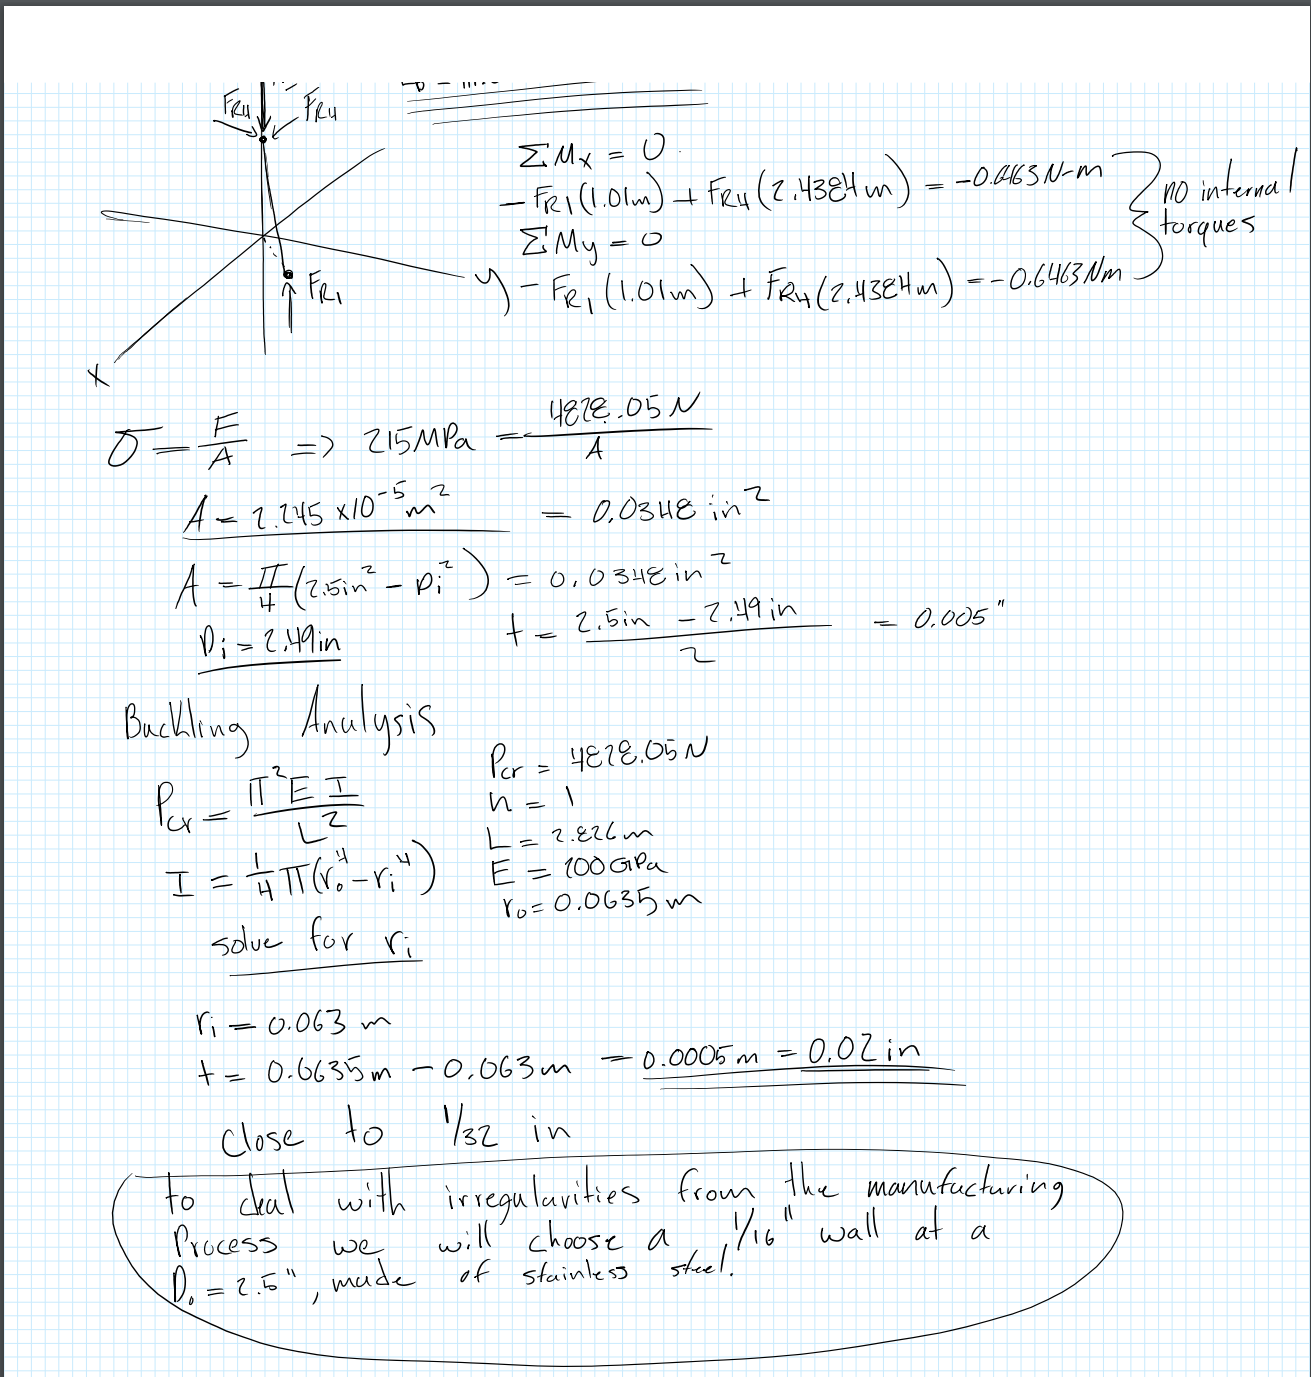 FR4 FR4
ΣMx = 0
- FR1(1.01m) + FR4(2.4384m) = -0.6463 N-m
ΣMy = 0
- FR1(1.01m) + FR4(2.4384m) = -0.6463 Nm
} no internal
torques
FR1
y
x
σ = F/A => 215MPa = 4828.05 N/A
A = 2.245 x10^-5 m^2 = 0.0348 in^2
A = π/4 (2.5in^2 - Di^2) = 0.0348 in^2
Di = 2.49in
t = (2.5in - 2.49in)/2 = 0.005"
Buckling Analysis
Pcr = π^2 E I / L^2
I = 1/4 π(ro^4 - ri^4)
solve for ri
Pcr = 4828.05 N
n = 1
L = 2.826 m
E = 200 GPa
ro = 0.0635 m
ri = 0.063 m
t = 0.0635m - 0.063m = 0.0005m = 0.02 in
Close to 1/32 in
to deal with irregularities from the manufacturing
Process we will choose a 1/16" wall at a
Do = 2.5", made of stainless steel.